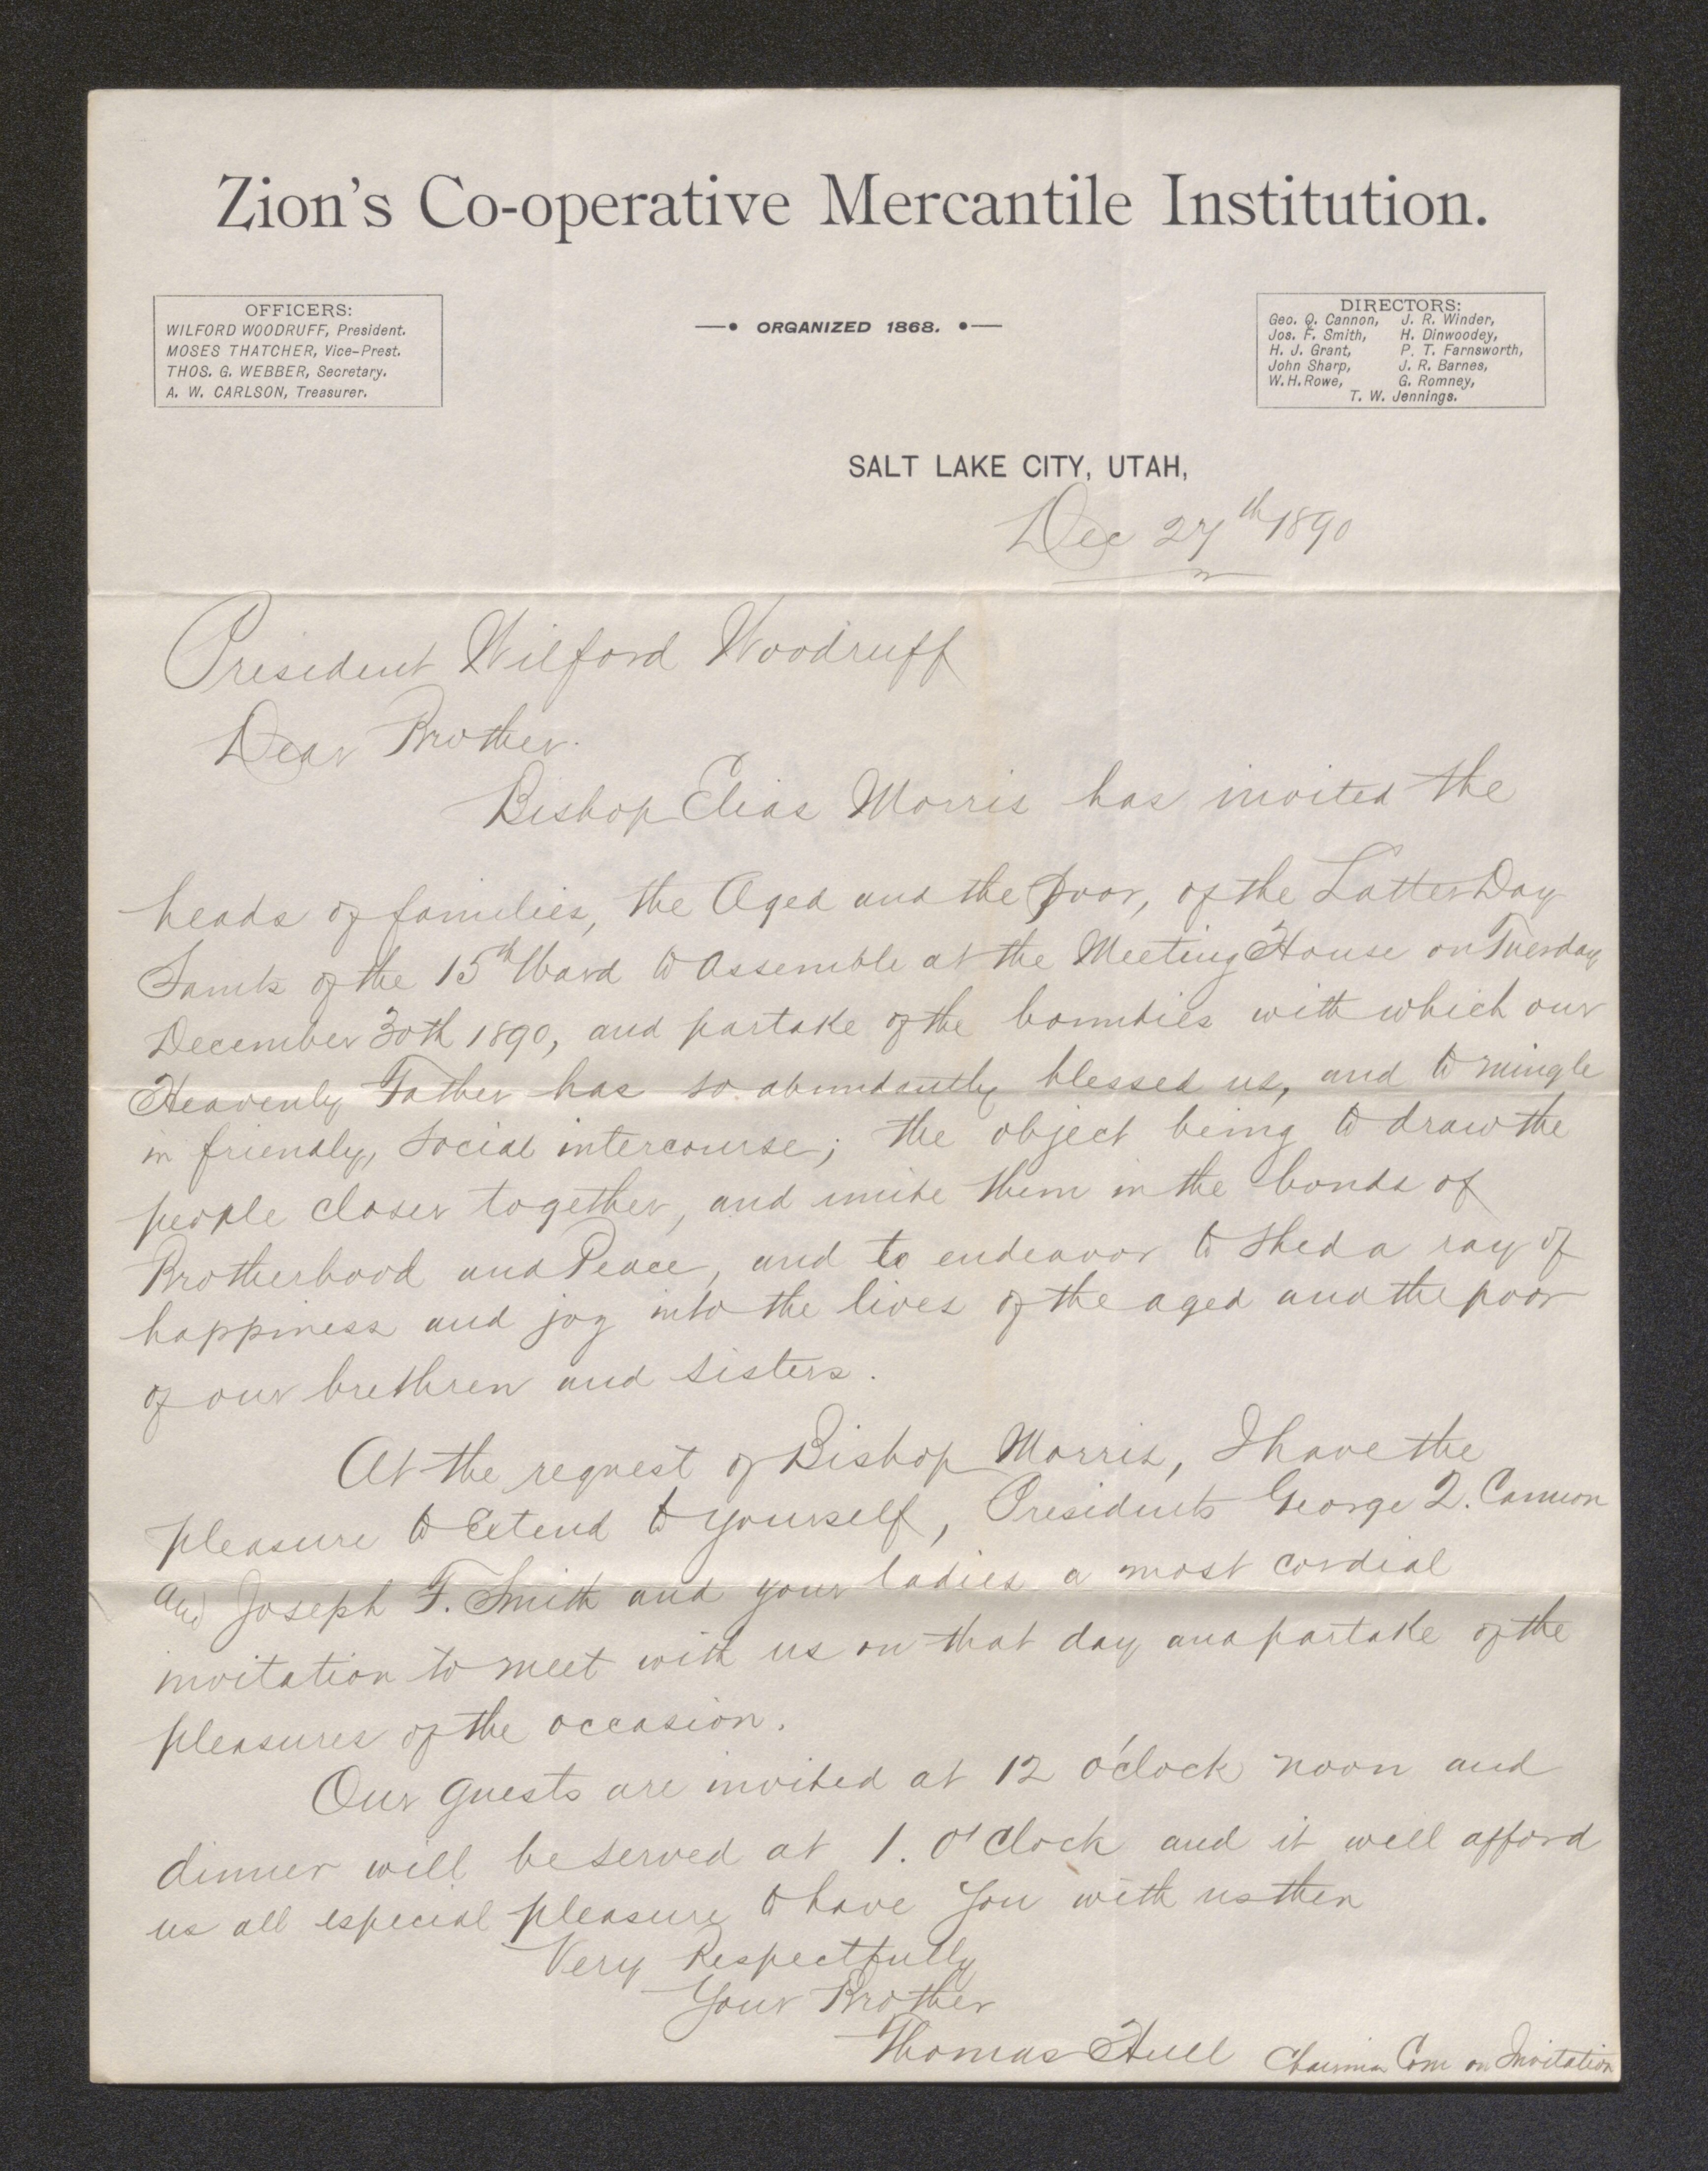 Zion's Co-operative Mercantile Institution.
OFFICERS:
WILFORD WOODRUFF, President.
MOSES THATCHER, Vice-Prest.
THOS. G. WEBBER, Secretary.
A. W. CARLSON, Treasurer.
ORGANIZED 1868.
DIRECTORS:
Geo. Q. Cannon, J. R. Winder,
Jos. F. Smith, H. Dinwoodey,
H. J. Grant, P. T. Farnsworth,
John Sharp, J. R. Barnes,
W. H. Rowe, G. Romney,
T. W. Jennings.
SALT LAKE CITY, UTAH,
Dec 27th 1890
President Wilford Woodruff
Dear Brother.
Bishop Elias Morris has invited the
heads of families, the Aged and the Poor, of the Latter Day
Saints of the 15th Ward to Assemble at the Meeting House on Tuesday
December 30th 1890, and partake of the bounties with which our
Heavenly Father has so abundantly blessed us, and to mingle
in friendly, social intercourse; the object being to draw the
people closer together, and unite them in the bonds of
Brotherhood and Peace, and to endeavor to shed a ray of
happiness and joy into the lives of the aged and the poor
of our brethren and sisters.
At the request of Bishop Morris, I have the
pleasure to Extend to yourself, Presidents George Q. Cannon
and Joseph F. Smith and your ladies a most cordial
invitation to meet with us on that day and partake of the
pleasures of the occasion.
Our guests are invited at 12 o'clock noon and
dinner will be served at 1. O'Clock and it will afford
us all especial pleasure to have you with us then
Very Respectfully
Your Brother
Thomas Hull Chairman Com on Invitation